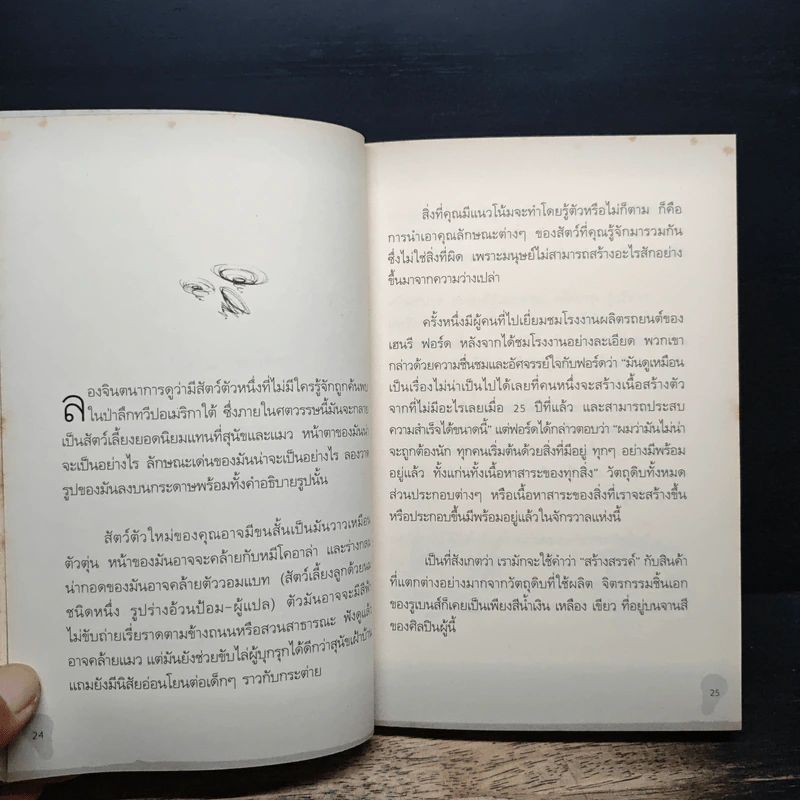 ลองจินตนาการดูว่ามีสัตว์ตัวหนึ่งที่ไม่มีใครรู้จักถูกค้นพบ
ในป่าลึกทวีปอเมริกาใต้ ซึ่งภายในศตวรรษนี้มันจะกลาย
เป็นสัตว์เลี้ยงยอดนิยมแทนที่สุนัขและแมว หน้าตาของมันน่า
จะเป็นอย่างไร ลักษณะเด่นของมันน่าจะเป็นอย่างไร ลองวาด
รูปของมันลงบนกระดาษพร้อมทั้งคำอธิบายรูปนั้น
สัตว์ตัวใหม่ของคุณอาจมีขนสั้นเป็นมันวาวเหมือน
ตัวตุ่น หน้าของมันอาจจะคล้ายกับหมีโคอาล่า และร่างกลม
น่ากอดของมันอาจคล้ายตัววอมแบท (สัตว์เลี้ยงลูกด้วยนม
ชนิดหนึ่ง รูปร่างอ้วนป้อม-ผู้แปล) ตัวมันอาจจะมีสีฟ้า
ไม่ขับถ่ายเรี่ยราดตามข้างถนนหรือสวนสาธารณะ ฟังดูแล้ว
อาจคล้ายแมว แต่มันยังช่วยขับไล่ผู้บุกรุกได้ดีกว่าสุนัขเฝ้าบ้าน
แถมยังมีนิสัยอ่อนโยนต่อเด็กๆ ราวกับกระต่าย
24
สิ่งที่คุณมีแนวโน้มจะทำโดยรู้ตัวหรือไม่ก็ตาม ก็คือ
การนำเอาคุณลักษณะต่างๆ ของสัตว์ที่คุณรู้จักมารวมกัน
ซึ่งไม่ใช่สิ่งที่ผิด เพราะมนุษย์ไม่สามารถสร้างอะไรสักอย่าง
ขึ้นมาจากความว่างเปล่า
ครั้งหนึ่งมีผู้คนที่ไปเยี่ยมชมโรงงานผลิตรถยนต์ของ
เฮนรี ฟอร์ด หลังจากได้ชมโรงงานอย่างละเอียด พวกเขา
กล่าวด้วยความชื่นชมและอัศจรรย์ใจกับฟอร์ดว่า "มันดูเหมือน
เป็นเรื่องไม่น่าเป็นไปได้เลยที่คนหนึ่งจะสร้างเนื้อสร้างตัว
จากที่ไม่มีอะไรเลยเมื่อ 25 ปีที่แล้ว และสามารถประสบ
ความสำเร็จได้ขนาดนี้" แต่ฟอร์ดได้กล่าวตอบว่า "ผมว่ามันไม่น่า
จะถูกต้องนัก ทุกคนเริ่มต้นด้วยสิ่งที่มีอยู่ ทุกๆ อย่างมีพร้อม
อยู่แล้ว ทั้งแก่นทั้งเนื้อหาสาระของทุกสิ่ง" วัตถุดิบทั้งหมด
ส่วนประกอบต่างๆ หรือเนื้อหาสาระของสิ่งที่เราจะสร้างขึ้น
หรือประกอบขึ้นมีพร้อมอยู่แล้วในจักรวาลแห่งนี้
เป็นที่สังเกตว่า เรามักจะใช้คำว่า "สร้างสรรค์" กับสินค้า
ที่แตกต่างอย่างมากจากวัตถุดิบที่ใช้ผลิต จิตรกรรมชิ้นเอก
ของรูเบนส์ก็เคยเป็นเพียงสีน้ำเงิน เหลือง เขียว ที่อยู่บนจานสี
ของศิลปินผู้นี้
25